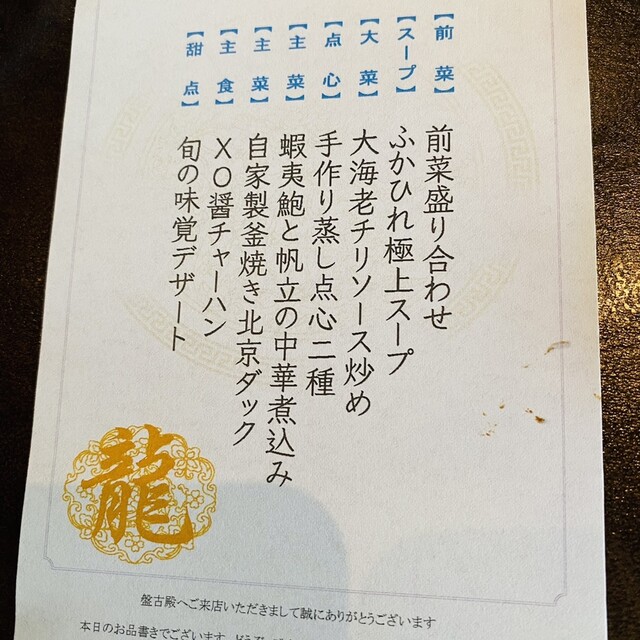 【前菜】 前菜盛り合わせ
【スープ】 ふかひれ極上スープ
【大菜】 大海老チリソース炒め
【点心】 手作り蒸し点心二種
【主菜】 蝦夷鮑と帆立の中華煮込み
【主菜】 自家製釜焼き北京ダック
【主食】 XO醤チャーハン
【甜点】 旬の味覚デザート
龍
盤古殿へご来店いただきまして誠にありがとうございます
本日のお品書きでございます。